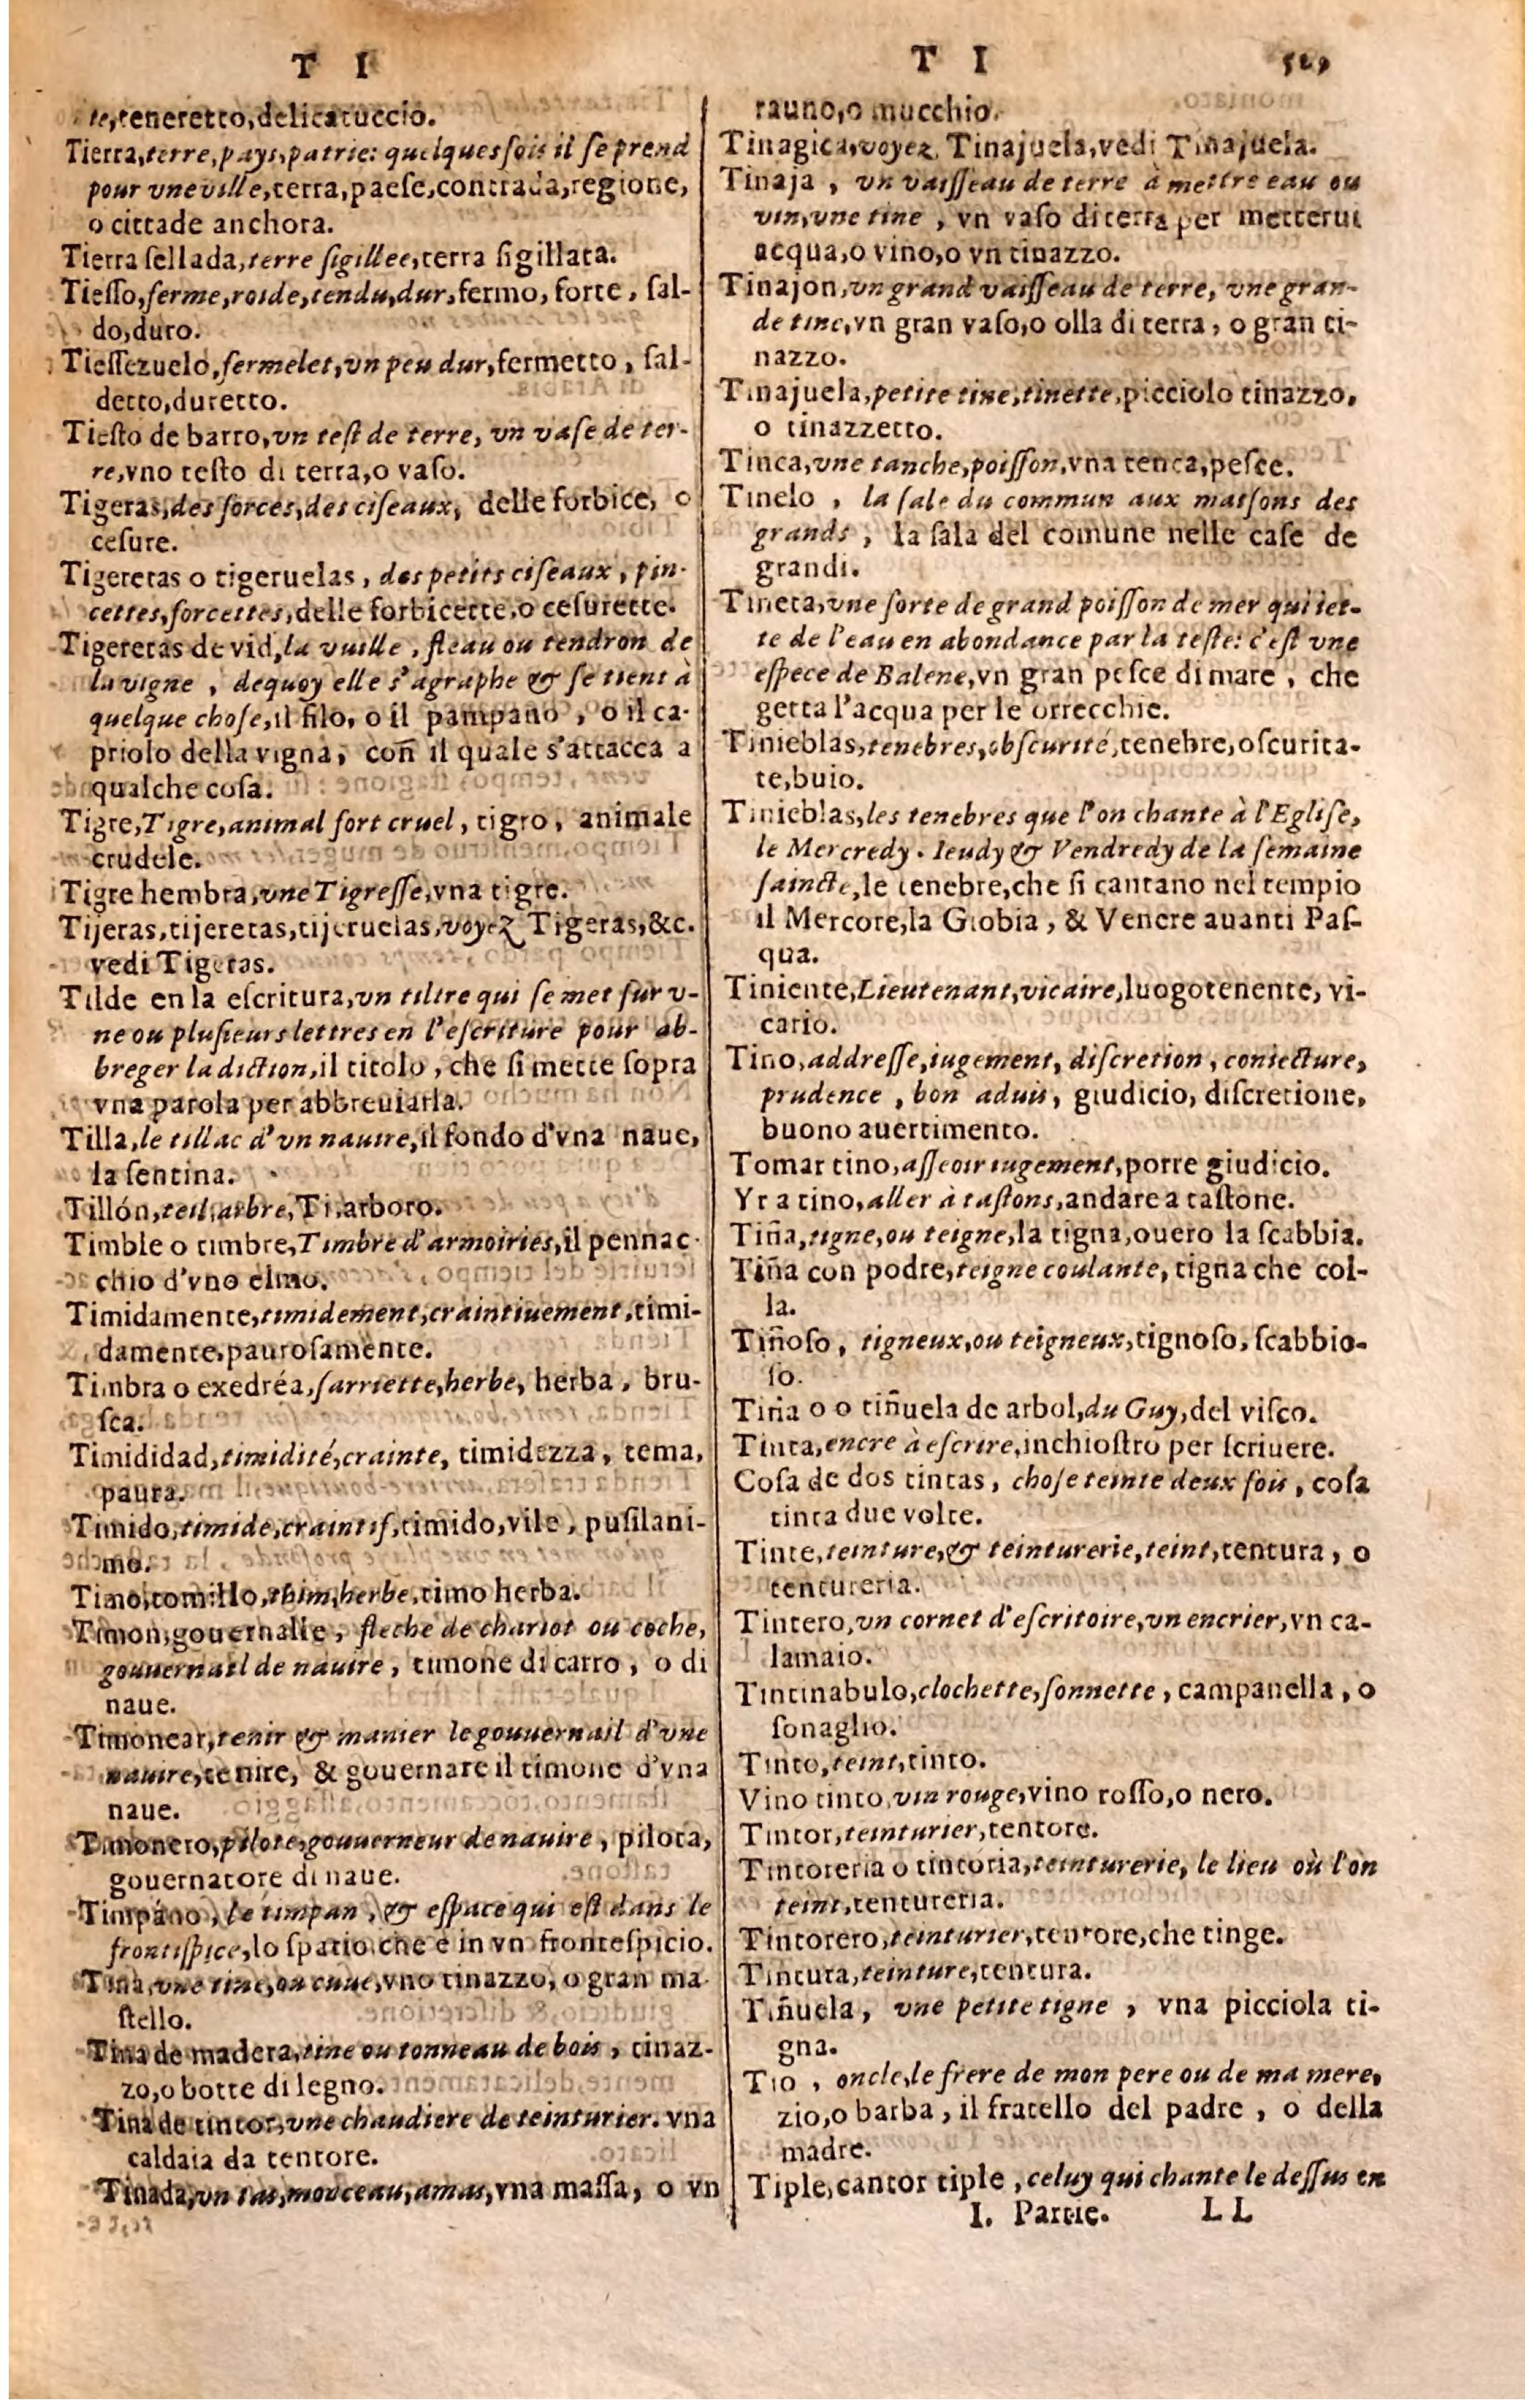 T I
te, teneretto, delicatuccio.
Tierra, terre, pays, patrie: quelquesfois il se prend
pour vne ville, terra, paese, contrada, regione,
o cittade anchora.
Tierra sellada, terre sigillee, terra sigillata.
Tiesso, ferme, roide, tendu, dur, fermo, forte, sal-
do, duro.
Tiessezuelo, fermelet, vn peu dur, fermetto, sal-
detto, duretto.
Tiesto de barro, vn test de terre, vn vase de ter-
re, vno testo di terra, o vaso.
Tigeras, des forces, des ciseaux, delle forbice, o
cesure.
Tigeretas o tigeruelas, des petits ciseaux, pin-
cettes, forcettes, delle forbicette, o cesurette.
Tigeretas de vid, la vuille, fleau ou tendron de
la vigne, dequoy elle s'agraphe & se tient à
quelque chose, il filo, o il pampano, o il ca-
priolo della vigna, con il quale s'attacca a
qualche cosa.
Tigre, Tigre, animal fort cruel, tigro, animale
crudele.
Tigre hembra, vne Tigresse, vna tigre.
Tijeras, tijeretas, tijeruelas, voyez Tigeras, &c.
vedi Tigeras.
Tilde en la escritura, vn tiltre qui se met sur v-
ne ou plusieurs lettres en l'escriture pour ab-
breger la diction, il titolo, che si mette sopra
vna parola per abbreuiarla.
Tilla, le tillac d'vn nauire, il fondo d'vna naue,
la sentina.
Tillón, teil, arbre, Ti. arboro.
Timble o timbre, Timbre d'armoiries, il pennac-
chio d'vno elmo.
Timidamente, timidement, craintiuement, timi-
damente, paurosamente.
Timbra o exedréa, sarriette, herbe, herba, bru-
sca.
Timididad, timidité, crainte, timidezza, tema,
paura.
Timido, timide, craintif, timido, vile, pusilani-
mo.
Timo, tomillo, thim, herbe, timo herba.
Timon, gouernalle, fleche de chariot ou coche,
gouuernail de nauire, timone di carro, o di
naue.
Timonear, tenir & manier le gouuernail d'vne
nauire, tenire, & gouernare il timone d'vna
naue.
Timonero, pilote, gouuerneur de nauire, pilota,
gouernatore di naue.
Timpáno, le timpan, & espace qui est dans le
frontispice, lo spatio che è in vn frontespicio.
Tina, vne tine, ou cuue, vno tinazzo, o gran ma-
stello.
Tina de madera, tine ou tonneau de bois, tinaz-
zo, o botte di legno.
Tina de tintor, vne chaudiere de teinturier. vna
caldaia da tentore.
Tinada, vn tas, morceau, amas, vna massa, o vn
T I 529
rauno, o mucchio.
Tinagica, voyez Tinajuela, vedi Tinajuela.
Tinaja, vn vaisseau de terre à mettre eau ou
vin, vne tine, vn vaso di terra per metterui
acqua, o vino, o vn tinazzo.
Tinajon, vn grand vaisseau de terre, vne gran-
de tine, vn gran vaso, o olla di terra, o gran ti-
nazzo.
Tinajuela, petite tine, tinette, picciolo tinazzo,
o tinazzetto.
Tinca, vne tanche, poisson, vna tenca, pesce.
Tinelo, la sale du commun aux maisons des
grands, la sala del comune nelle case de
grandi.
Tineta, vne sorte de grand poisson de mer qui iet-
te de l'eau en abondance par la teste: c'est vne
espece de Balene, vn gran pesce di mare, che
getta l'acqua per le orrecchie.
Tinieblas, tenebres, obscurité, tenebre, oscurita-
te, buio.
Tinieblas, les tenebres que l'on chante à l'Eglise,
le Mercredy. Ieudy & Vendredy de la semaine
saincte, le tenebre, che si cantano nel tempio
il Mercore, la Giobia, & Venere auanti Pas-
qua.
Tiniente, Lieutenant, vicaire, luogotenente, vi-
cario.
Tino, addresse, iugement, discretion, coniecture,
prudence, bon aduis, giudicio, discretione,
buono auertimento.
Tomar tino, asseoir iugement, porre giudicio.
Yr a tino, aller à tastons, andare a tastone.
Tiña, tigne, ou teigne, la tigna, ouero la scabbia.
Tiña con podre, teigne coulante, tigna che col-
la.
Tiñoso, tigneux, ou teigneux, tignoso, scabbio-
so.
Tiña o o tiñuela de arbol, du Guy, del visco.
Tinta, encre à escrire, inchiostro per scriuere.
Cosa de dos tintas, chose teinte deux fois, cosa
tinta due volte.
Tinte, teinture, & teinturerie, teint, tentura, o
tentureria.
Tintero, vn cornet d'escritoire, vn encrier, vn ca-
lamaio.
Tintinabulo, clochette, sonnette, campanella, o
sonaglio.
Tinto, teint, tinto.
Vino tinto, vin rouge, vino rosso, o nero.
Tintor, teinturier, tentore.
Tintoreria o tintoria, teinturerie, le lieu où l'on
teint, tentureria.
Tintorero, teinturier, tentore, che tinge.
Tintura, teinture, tentura.
Tiñuela, vne petite tigne, vna picciola ti-
gna.
Tio, oncle, le frere de mon pere ou de ma mere,
zio, o barba, il fratello del padre, o della
madre.
Tiple, cantor tiple, celuy qui chante le dessus en
I. Partie. LL